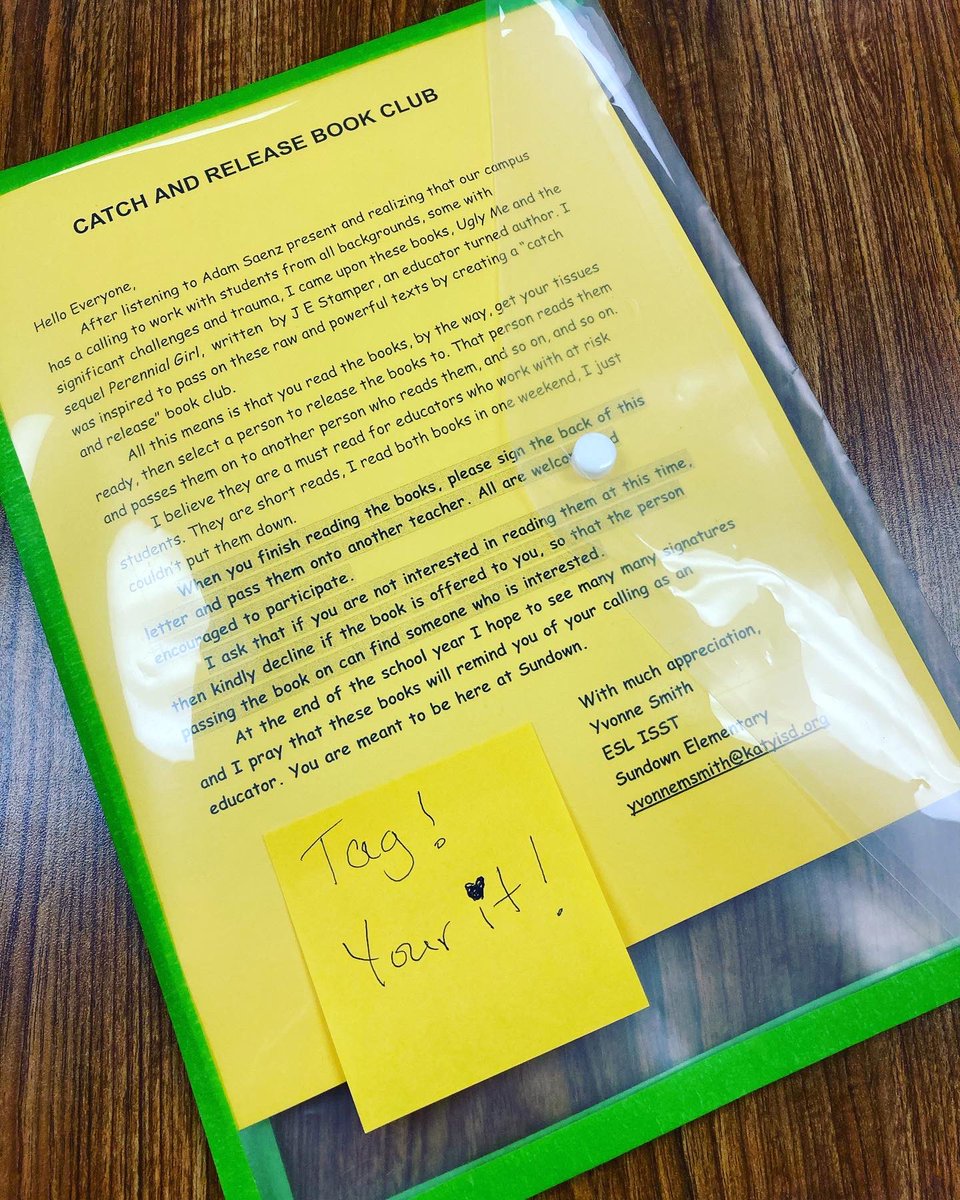 CATCH AND RELEASE BOOK CLUB
Hello Everyone,
After listening to Adam Saenz present and realizing that our campus
has a calling to work with students from all backgrounds, some with
significant challenges and trauma, I came upon these books, Ugly Me and the
sequel Perennial Girl, written by J E Stamper, an educator turned author. I
was inspired to pass on these raw and powerful texts by creating a "catch
and release" book club.
All this means is that you read the books, by the way, get your tissues
ready, then select a person to release the books to. That person reads them
and passes them on to another person who reads them, and so on, and so on.
I believe they are a must read for educators who work with at risk
students. They are short reads, I read both books in one weekend, I just
couldn't put them down.
When you finish reading the books, please sign the back of this
letter and pass them onto another teacher. All are welcome
encouraged to participate.
I ask that if you are not interested in reading them at this time,
then kindly decline if the book is offered to you, so that the person
passing the book on can find someone who is interested.
At the end of the school year I hope to see many many signatures
and I pray that these books will remind you of your calling as an
educator. You are meant to be here at Sundown.
With much appreciation,
Yvonne Smith
ESL ISST
Sundown Elementary
yvonnemsmith@katyisd.org
Tag!
Your it!